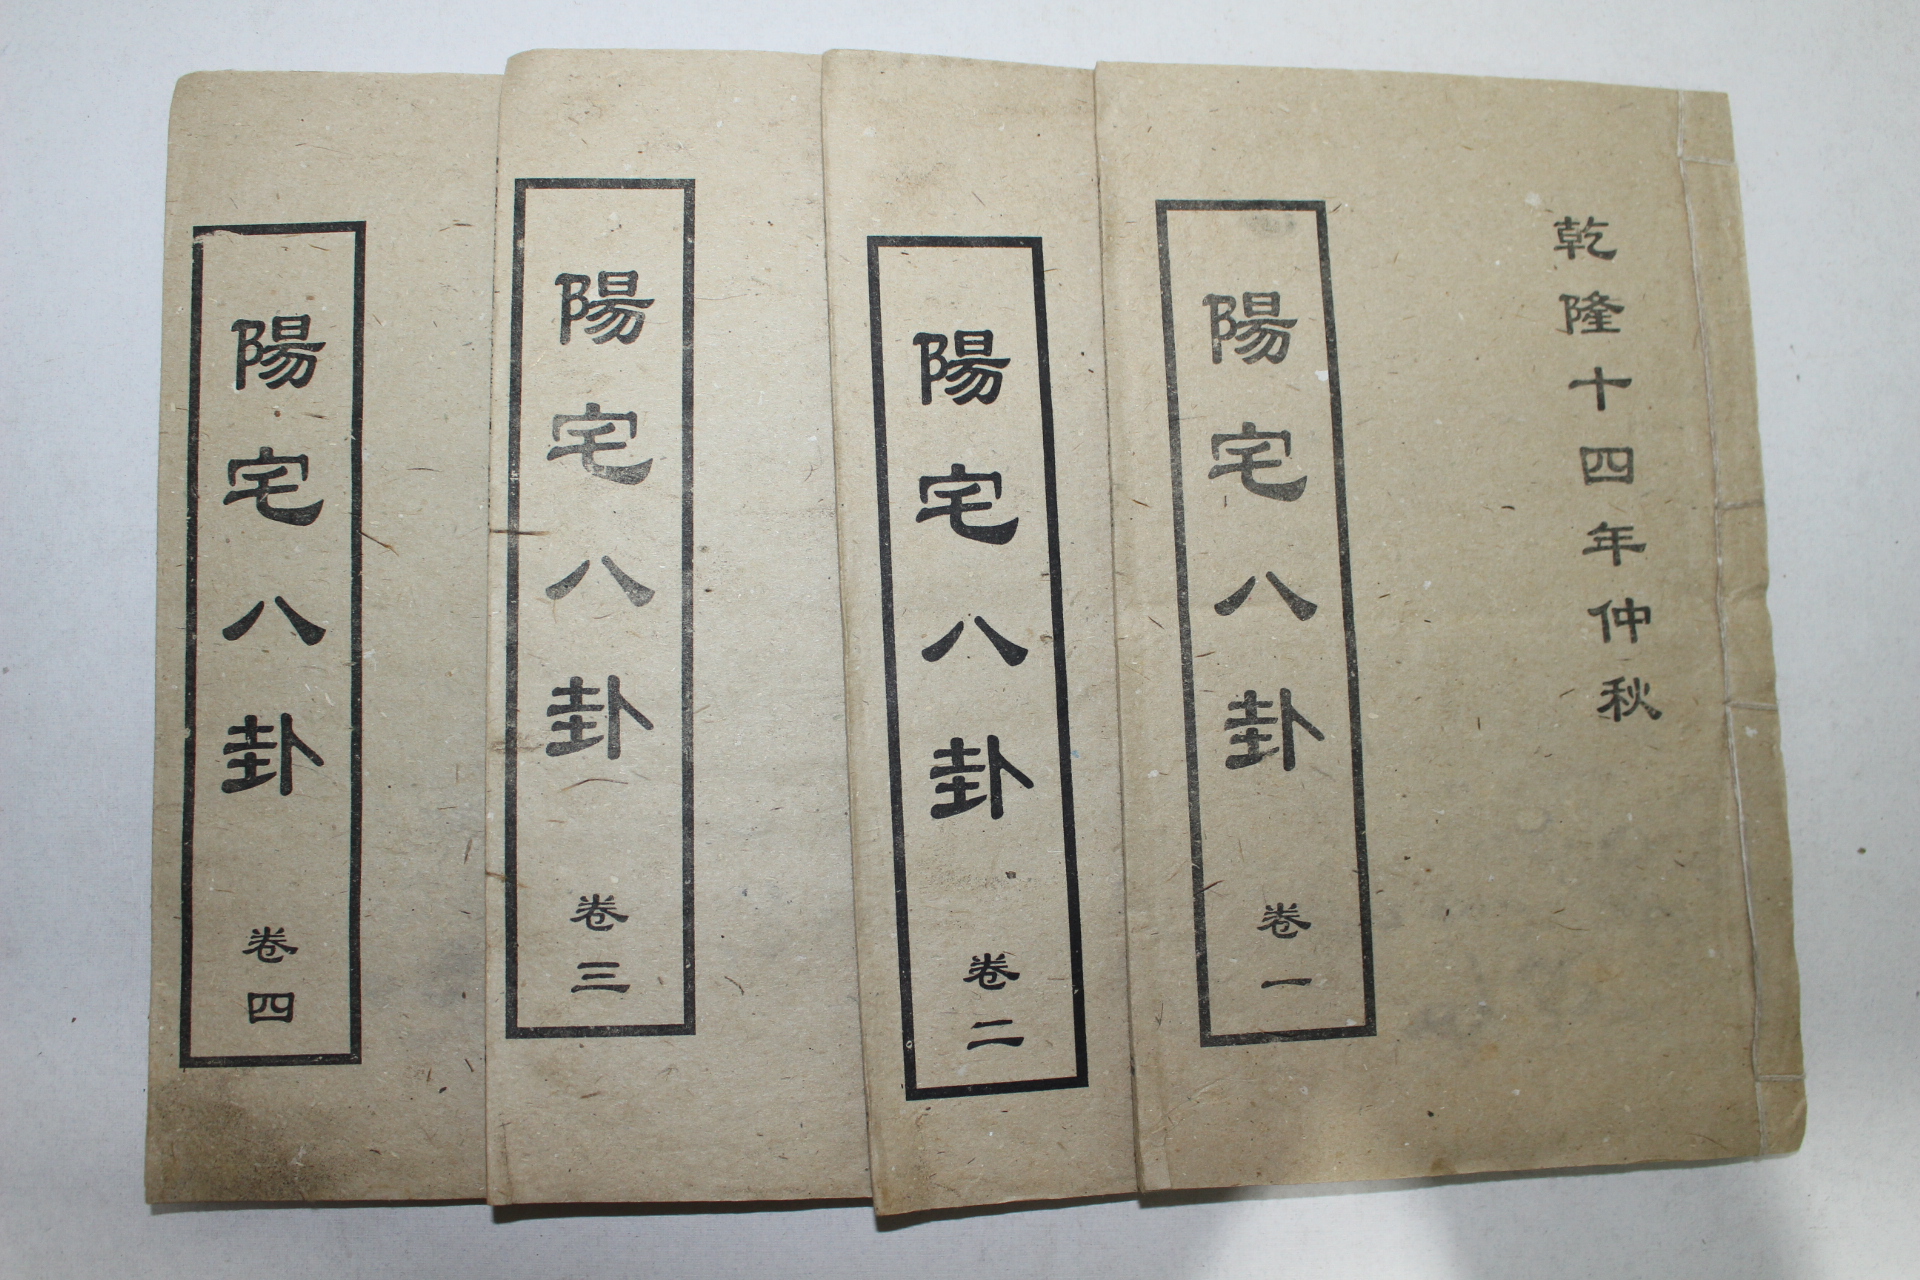 乾隆十四年仲秋
陽宅八卦 卷一
陽宅八卦 卷二
陽宅八卦 卷三
陽宅八卦 卷四